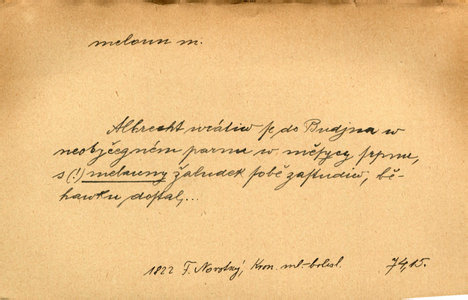 meloun m.
Albrecht wrátiw se do Budjna w
neobyčegném parnu w měsycy srpnu,
s (!) melauny žaludek sobě zastudiw, bě-
hawku dostal,...
1822 F. Novotný, Kron. ml.-bolesl. 74,15.